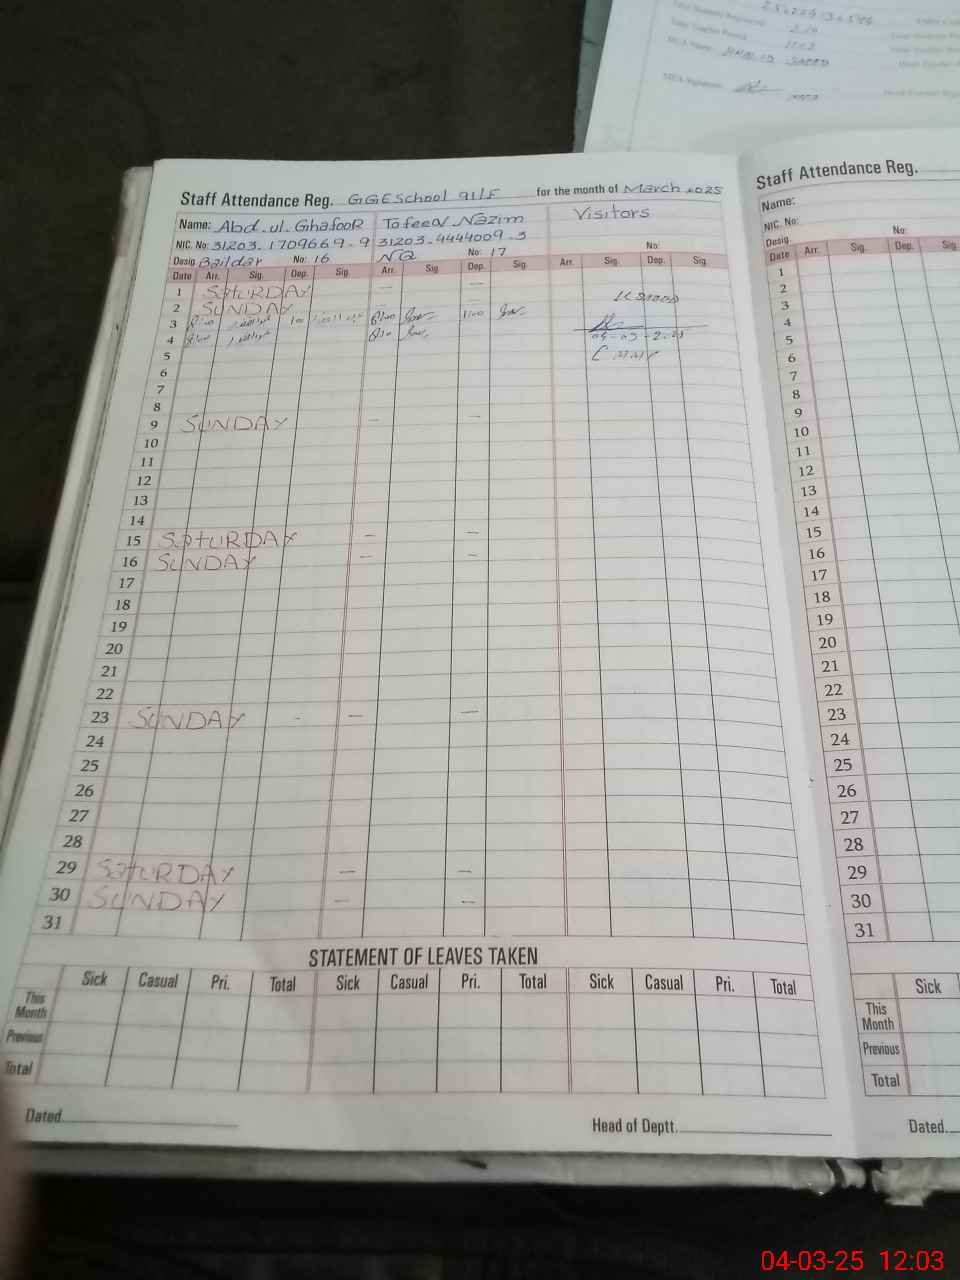 Staff Attendance Reg. GGESchool 91/F for the month of March 2025
Name: Abd.ul.Ghafoor Tofeeq Nazim Visitors
NIC. No: 31203.1709669.9 31203.4444009.3
Desig. Baildar No: 16 NQ No: 17 No:
Date Arr. Sig. Dep. Sig. Arr. Sig. Dep. Sig. Arr. Sig. Dep. Sig.
1 SATURDAY — —
2 SUNDAY
3
4
5
6
7
8
9 SUNDAY — —
10
11
12
13
14
15 SATURDAY — —
16 SUNDAY — —
17
18
19
20
21
22
23 SUNDAY - — —
24
25
26
27
28
29 SATURDAY — —
30 SUNDAY — —
31
STATEMENT OF LEAVES TAKEN
Sick Casual Pri. Total Sick Casual Pri. Total Sick Casual Pri. Total
This Month
Previous
Total
Dated Head of Deptt.
Staff Attendance Reg.
Name:
NIC. No:
Desig. No:
Date Arr. Sig. Dep. Sig.
1
2
3
4
5
6
7
8
9
10
11
12
13
14
15
16
17
18
19
20
21
22
23
24
25
26
27
28
29
30
31
Sick
This Month
Previous
Total
Dated
04-03-25 12:03